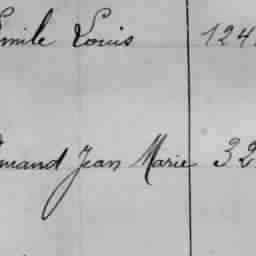 Emile Louis 124
mand Jean Marie 32